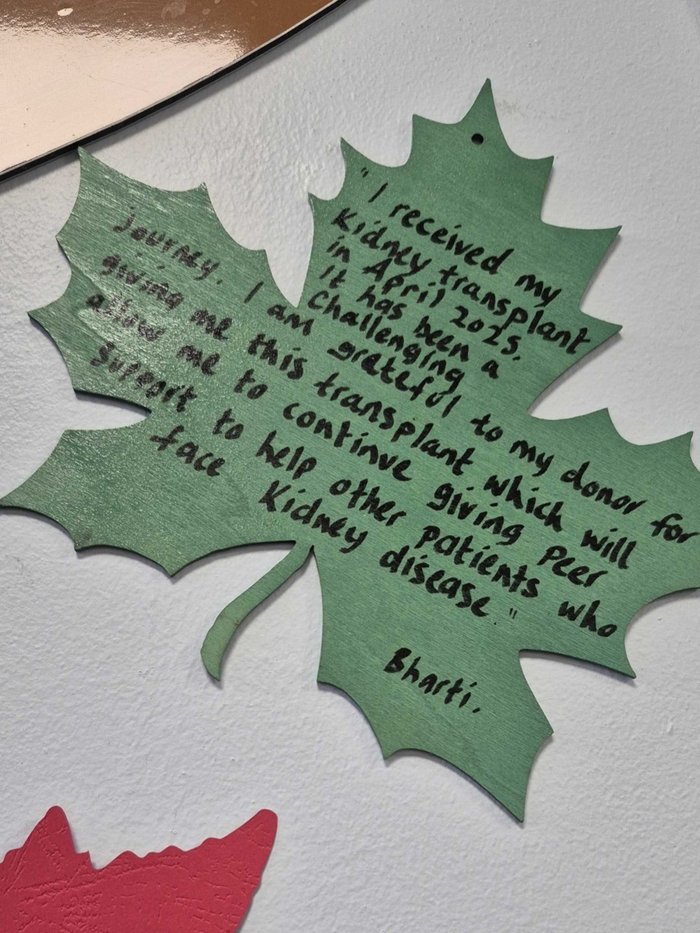 "I received my
Kidney transplant
in April 2025.
It has been a
Challenging
journey. I am grateful to my donor for
giving me this transplant which will
allow me to continue giving peer
support to help other patients who
face Kidney disease."
Bharti.